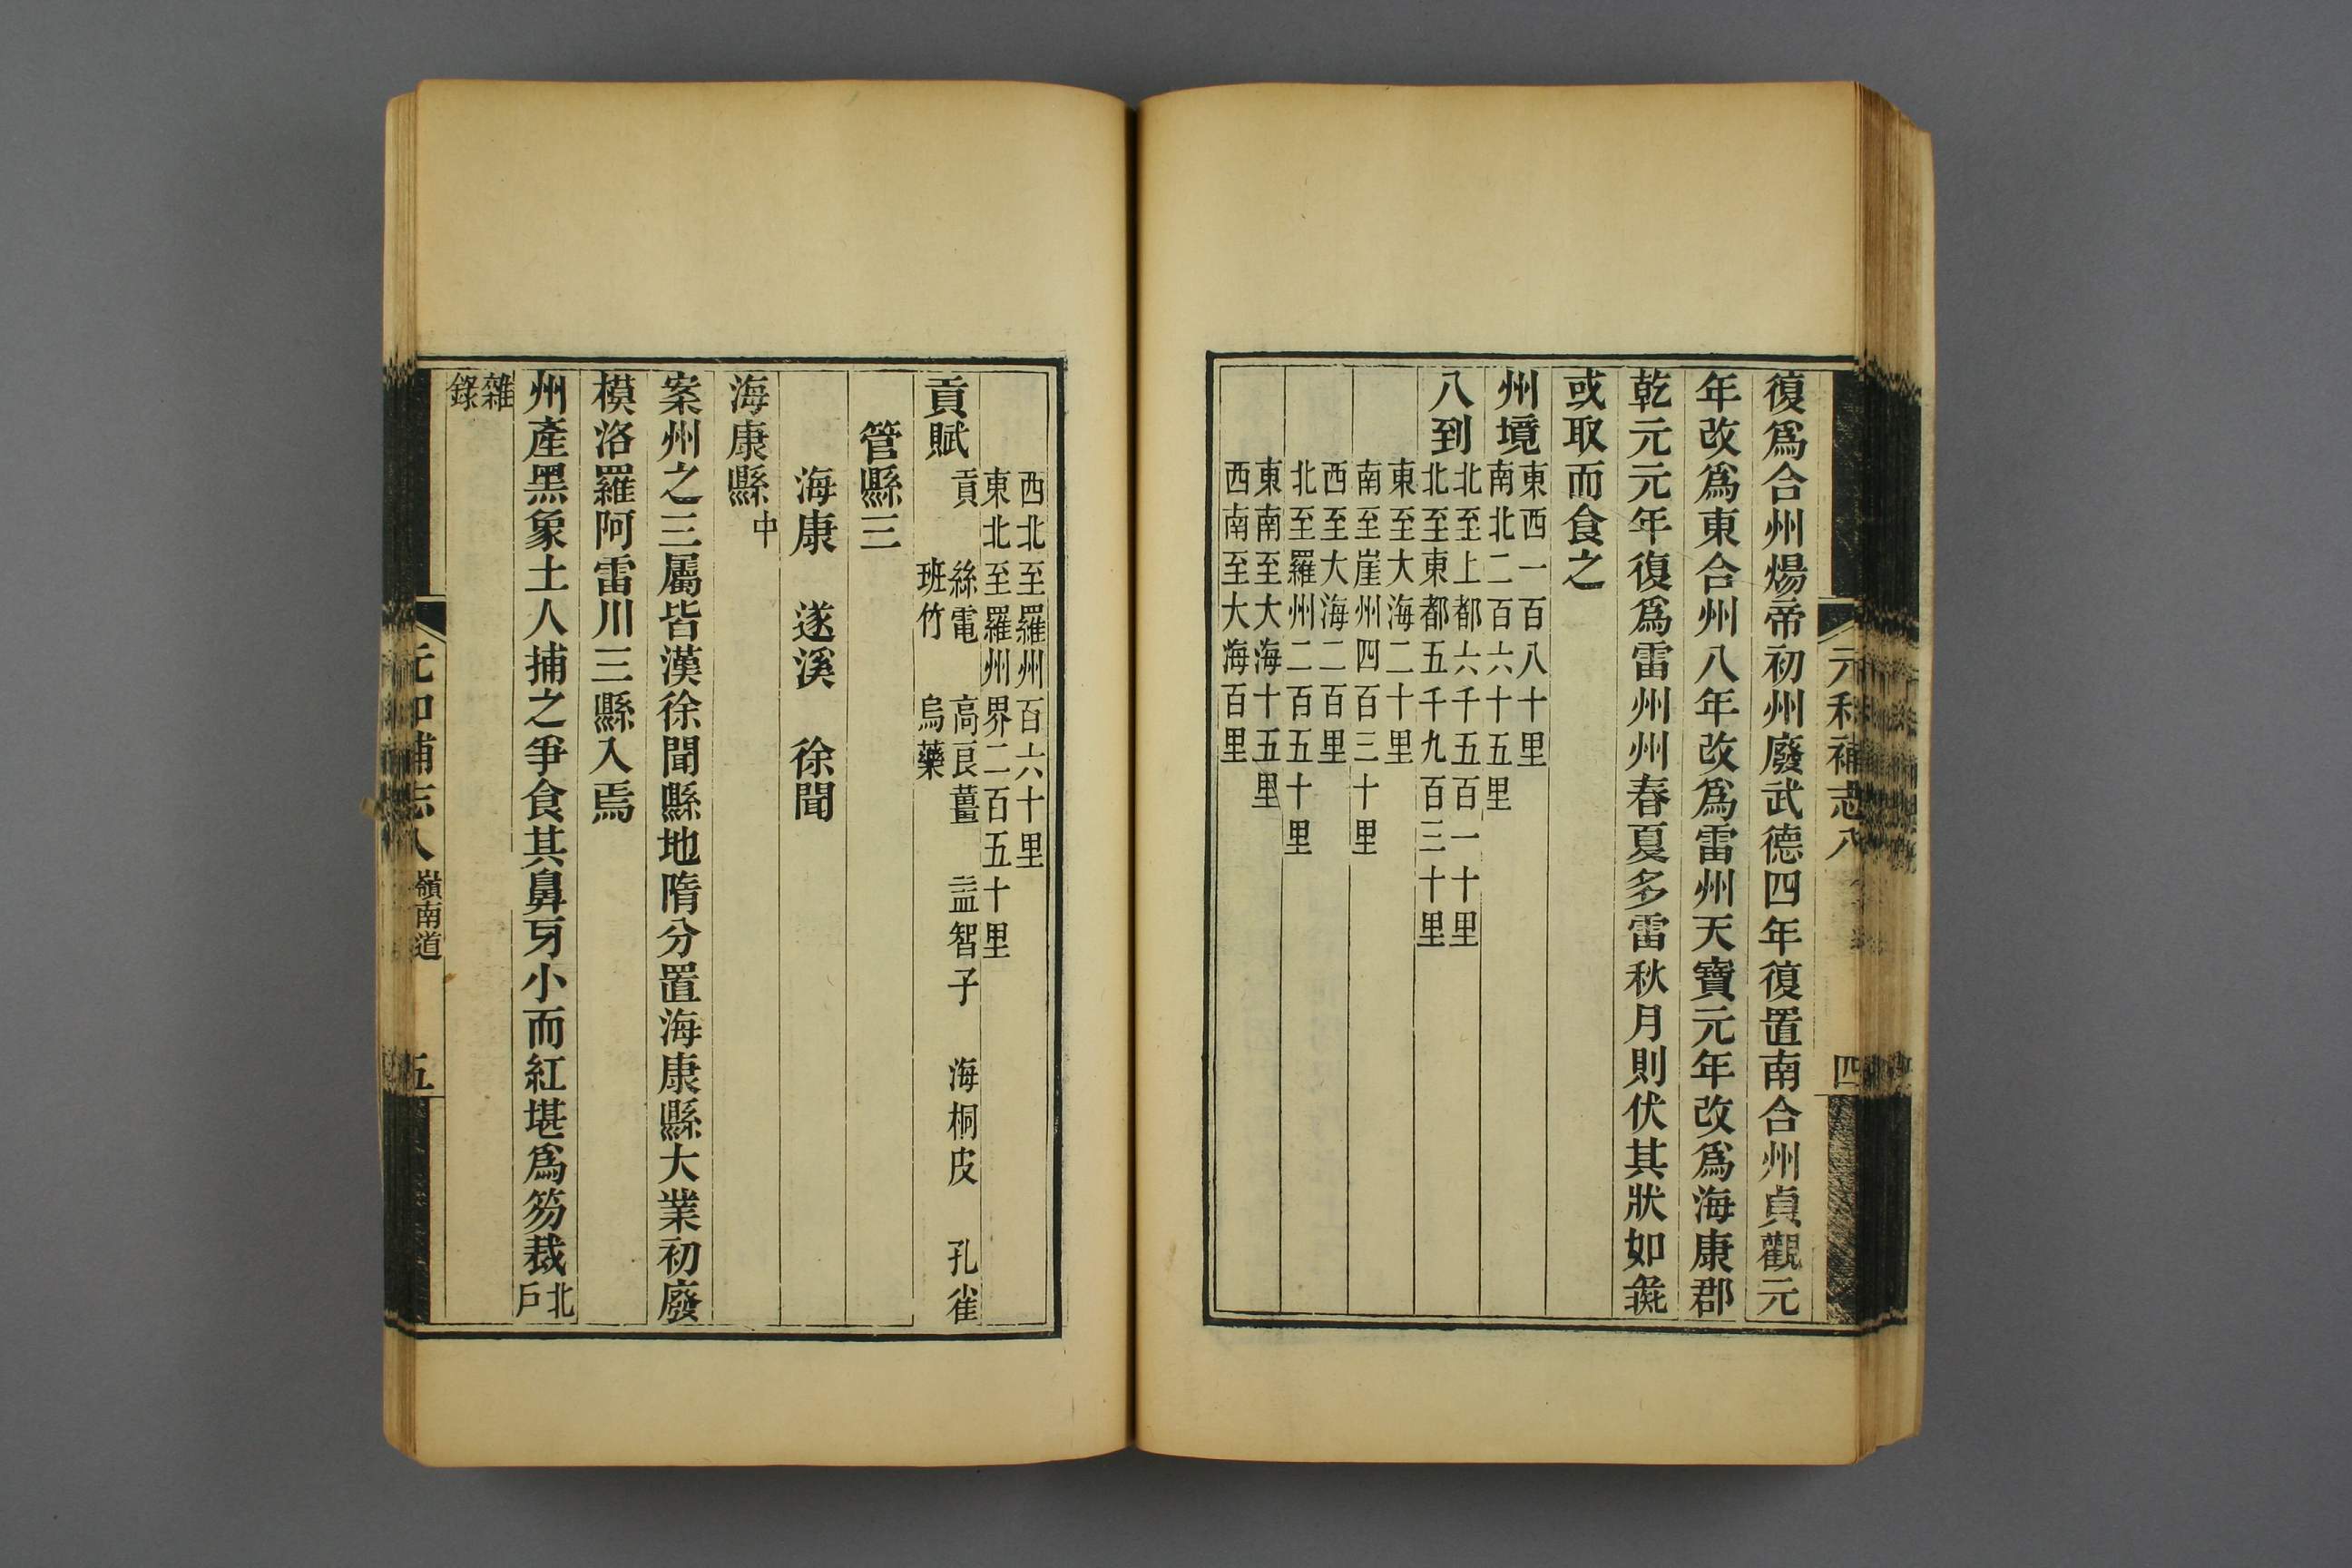 元和補志八
四
復爲合州煬帝初州廢武德四年復置南合州貞觀元
年改爲東合州八年改爲雷州天寶元年改爲海康郡
乾元元年復爲雷州州春夏多雷秋月則伏其狀如彘
或取而食之
州境
東西一百八十里
南北二百六十五里
八到
北至上都六千五百一十里
北至東都五千九百三十里
東至大海二十里
南至崖州四百三十里
西至大海二百里
北至羅州二百五十里
東南至大海十五里
西南至大海百里
西北至羅州百六十里
東北至羅州界二百五十里
貢賦
貢　絲電　高良薑　益智子　海桐皮　孔雀
班竹　烏藥
管縣三
海康　遂溪　徐聞
海康縣中
案州之三屬皆漢徐聞縣地隋分置海康縣大業初廢
模洛羅阿雷川三縣入焉
州產黑象土人捕之爭食其鼻牙小而紅堪爲笏裁北戶
雜錄
元和補志八
嶺南道
五